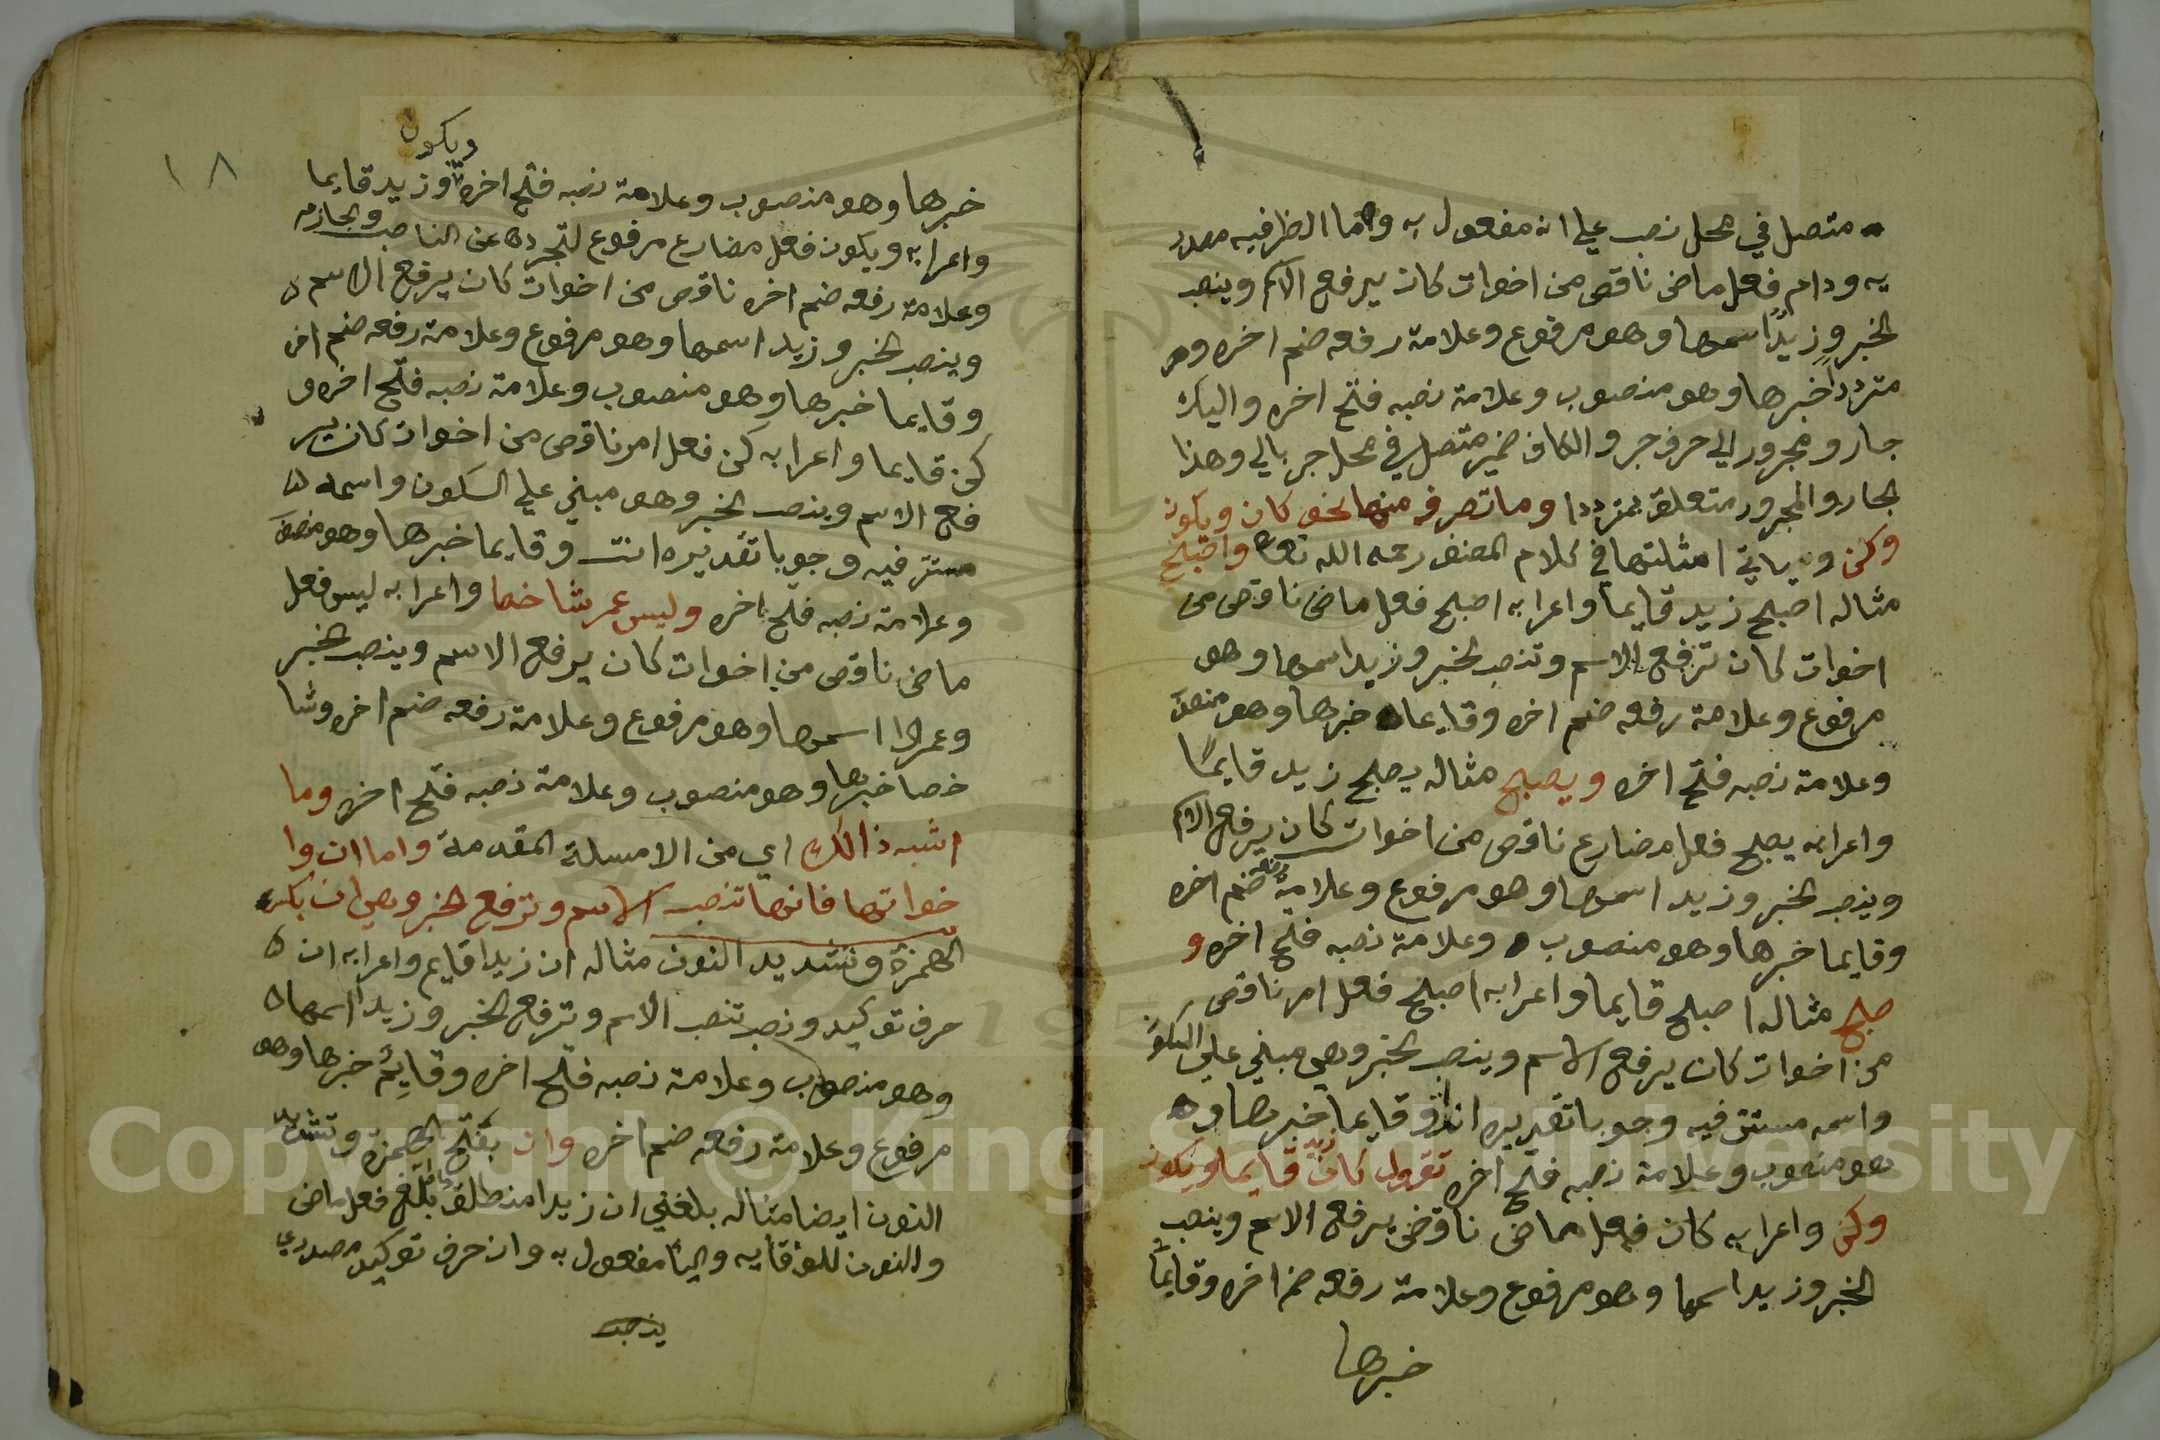 متصل في محل نصب علي انه مفعول به وما الظرفيه مصدر
يه ودام فعل ماضي ناقص من اخوات كان يرفع الاسم وينصب
الخبر وزيدًا اسمها وهو مرفوع وعلامة رفعه ضم اخره وهو
مترددًا خبرها وهو منصوب وعلامة نصبه فتح اخره واليك
جار ومجرور الي حرف جر والكاف ضمير متصل في محل جر بالي وهذا
الجار والمجرور متعلق بمترددا وما تصرف منها نحو كان ويكون
وكن وسياتي امثلتها في كلام المصنف رحمه الله تعالى واصبح
مثاله اصبح زيد قايما واعرابه اصبح فعل ماضي ناقص من
اخوات كان ترفع الاسم وتنصب الخبر وزيد اسمها وهو
مرفوع وعلامة رفعه ضم اخره وقايما خبرها وهو منصو
وعلامة نصبه فتح اخره ويصبح مثاله يصبح زيد قايمًا
واعرابه يصبح فعل مضارع ناقص من اخوات كان يرفع الاسم
وينصب الخبر وزيد اسمها وهو مرفوع وعلامة رفعه ضم اخره
وقايما خبرها وهو منصوب وعلامة نصبه فتح اخره و
صبح مثاله اصبح قايما واعرابه اصبح فعل امر ناقص
من اخوات كان يرفع الاسم وينصب الخبر وهي مبني علي السكو
واسمه مستتر فيه وجوبا تقديره انت وقايما خبرها و
هو منصوب وعلامة نصبه فتح اخره تقول كان زيد قايما ويكون
وكن واعرابه كان فعل ماضي ناقص يرفع الاسم وينصب
الخبر وزيد اسمها وهو مرفوع وعلامة رفعه ضم اخره وقايمًا
خبرها
١٨
ويكون
خبرها وهو منصوب وعلامة نصبه فتح اخره وزيد قايما
واعرابه ويكون فعل مضارع مرفوع لتجرده عن الناصب والجازم
وعلامة رفعه ضم اخره ناقص من اخوات كان يرفع الاسم
وينصب الخبر وزيد اسمها وهو مرفوع وعلامة رفعه ضم اخر
وقايما خبرها وهو منصوب وعلامة نصبه فتح اخره و
كن قايما واعرابه كن فعل امر ناقص من اخوات كان ير
فع الاسم وينصب الخبر وهو مبني علي السكون واسمه
مستتر فيه وجوبا تقديره انت وقايما خبرها وهو منصو
وعلامة نصبه فتح اخره وليس عمر شاخصا واعرابه ليس فعل
ماضي ناقص من اخوات كان يرفع الاسم وينصب الخبر
وعمرا اسمها وهو مرفوع وعلامة رفعه ضم اخره وشا
خصا خبرها وهو منصوب وعلامة نصبه فتح اخره وما
اشبه ذالك اي من الامسلة المقدمة واما ان وا
خواتها فانها تنصب الاسم وترفع الخبر وهي ان بكسر
الهمزة وتشديد النون مثاله ان زيدا قايم واعرابه ان
حرف توكيد ونصب تنصب الاسم وترفع الخبر وزيدا اسمها
وهو منصوب وعلامة نصبه فتح اخره وقائم خبرها وهو
مرفوع وعلامة رفعه ضم اخره وان بفتح الهمزة وتشديد
النون ايضا مثاله بلغني ان زيدا منطلق بلغ فعل ماضي
والنون للوقايه واليا مفعول به وان حرف توكيد مصدري
ينصب
Copyright © King Saud University